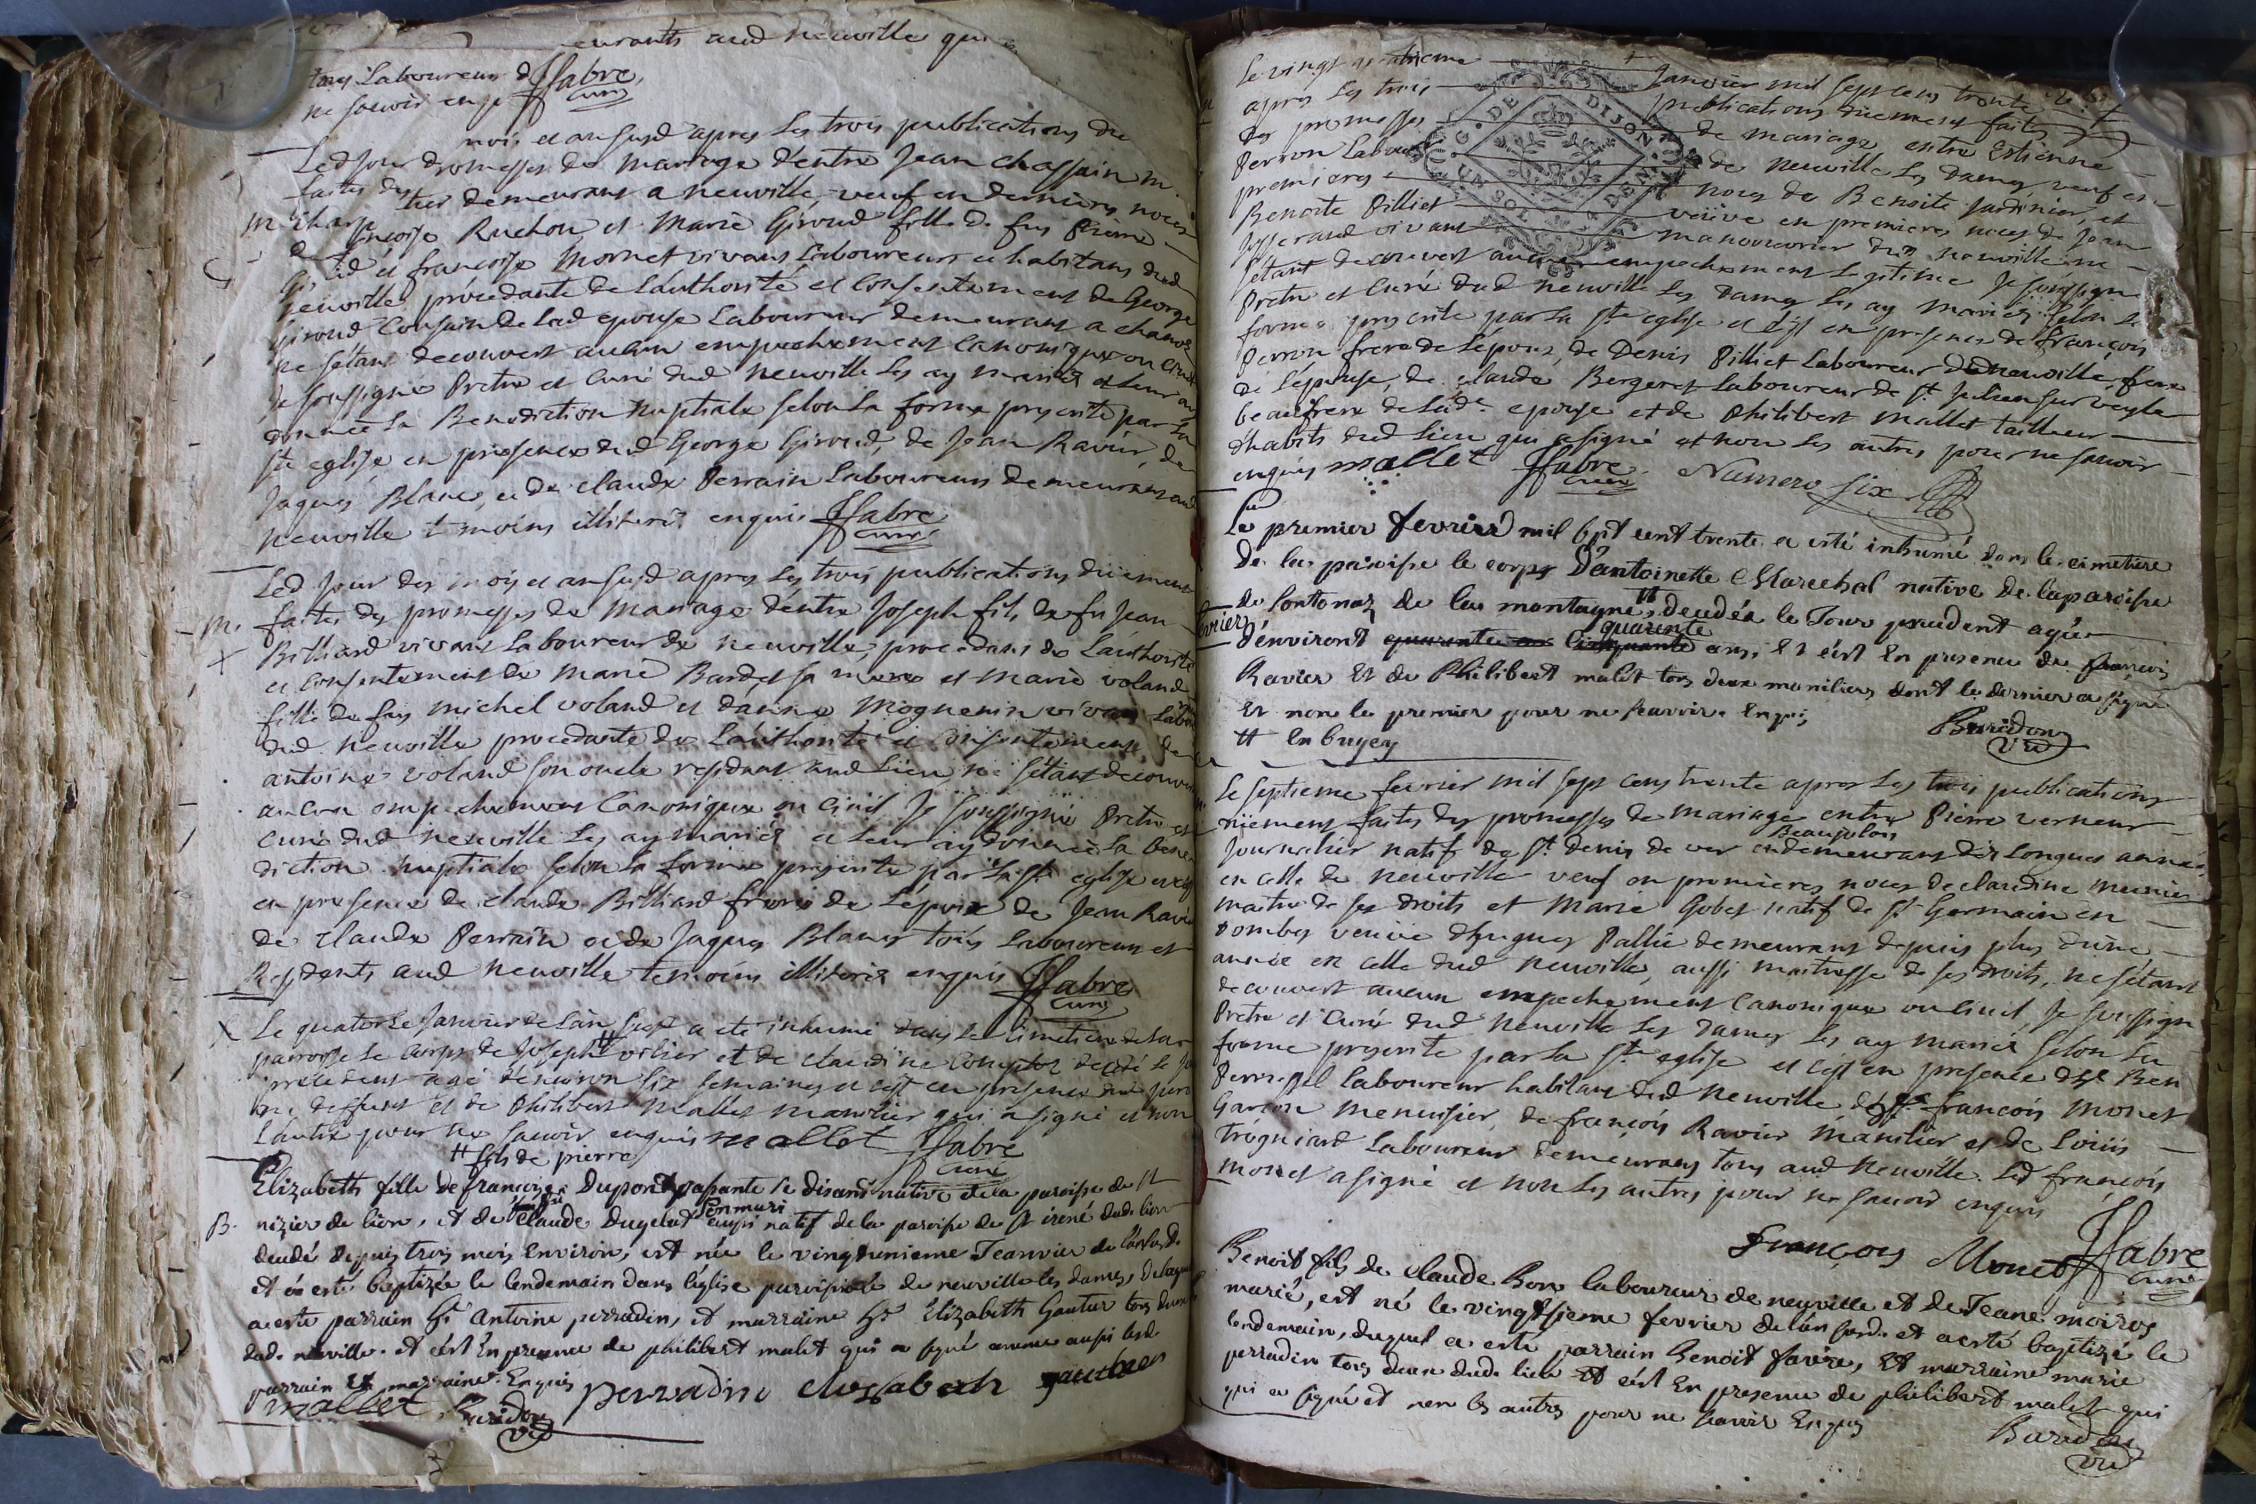 demeurants aud neuville qui
tous Laboureurs d
JFabre
ne scavoir enquis
curé
Led jour des mois et an susd apres les trois publications du
faites des promesses de mariage d'entre Jean Chassain m.
m charpentier demeurant a neuville, veuf en dernieres noces
de francoise Ruchon et Marie Giroud fille de fus Pierre
Giroud et francoise Mornet vivans Laboureurs et habitans dud
neuville, procedante de Lauthorité et Consentement de George
Giroud Cousin de Lad epouse Laboureur demeurant a chanoz
ne setant decouvert aucun empechement canonique ou civil
Je soussigné Pretre et Curé dud neuville Les ay mariés et leur ay
donnée la Benediction nuptiale selon La forme prescrite par La
ste eglise en presence dud George Giroud, de Jean Ravier, de
Jaques Blanc, et de claude Perrain Laboureurs demeurans aud
neuville temoins illiterés enquis JFabre
curé
Led Jour des mois et an susd apres Les trois publications düement
m. faites des promesses de Mariage d'entre Joseph fils de fu Jean
Billiard vivant Laboureur de neuville, procedant de Lauthorité
et consentement de Marie Bardet sa mere et Marie voland
fille de fus michel voland et d'anne Moguenin vivans Labou
dud neuville procedante de Lauthorité et consentement de
antoine voland son oncle residant aud Lieu ne setant decouvert
aucun empechement Canonique ou Civil Je soussigné Pretre et
curé dud neuville Les ay mariés et leur ay donnée la bene
diction nuptiale selon La forme prescrite par La ste eglise et c'est
en presence de claude Billiard frere de Lepoux de Jean Ravier
de claude Perrain et de Jaques Blanc tous Laboureurs et
Residants aud neuville temoins illiterés enquis JFabre
curé
Le quatorse Janvier de L'an susd a eté inhumé dans le cimetiere de La
parroisse le corps de Joseph vilier et de claudine Comptoz decedé le jour
precedent agé d'environ six semaines et c'est en presence dud pere
du deffunt et de Philibert Mallet manilier qui a signé et non
Lautre pour ne scavoir enquis mallet JFabre
curé
# fils de pierre
B. Elizabeth fille de françoise Dupont passante se disant native de la paroisse de st
son mari
nizier de lion, et de claude Dugelut aussi natif de la paroise de st irené dud. lion
decedé depuis trois mois Environ, est née le vingtunieme Jeanvier de l'an susd.
et a esté baptizée le lendemain dans leglise paroissiale de neuville les dames, de laquelle
a esté parrain sr Antoine perradin, et marraine Elizabeth Gautier tous deux
dud. neuville. et c'est En presence de philibert malet qui a signé comme aussi lesd.
parrain Et marraine Enquis perradin elisabeth gautier
mallet Baridon
vic
Le vingt quatrieme Janvier mil sept cens trente
apres Les trois publications düement faites
des promesses de mariage entre Estienne
Perron Laboureur de neuville Les Dames veuf en
premieres noces de Benoite Jardinier, et
Benoite Pilliet veüve en premieres noces de Jean
Josserand vivant manouvrier dud neuville ne
setant decouvert aucun empechement Legitime Je soussigné
Pretre et Curé dud neuville Les Dames Les ay mariés selon La
forme prescrite par La ste eglise et c'est en presence de françois
Perron frere de Lepoux, de Denis Pilliet Laboureur de neuville, frere
de L'epouse, de claude Bergeret Laboureur de st Julien sur veyle
beaufrere de Lade epouse et de Philibert Mallet tailleur
d'habits dud Lieu qui a signé et non Les autres pour ne scavoir
enquis mallet JFabre Numero six
curé
G. DE DIJON
UN SOL 4 DEN.
Le premier fevrier mil sept cent trente a esté inhumé dans le cimetiere
De la paroisse le corps D'antoinette Marechal native De la paroisse
de Sontonaz De la montagne # decedée le Jour precedent agée
fevrier quarente
d'environt quarante ans Cinquante ans, Et c'est En presence de françois
Ravier Et de Philibert malet tous deux maniliers dont le dernier a signé
Et non le premier pour ne sçavoir. Enquis
# En bugey
Baridon
vic
Le septieme fevrier mil sept cens trente apres Les trois publications
düement faites des promesses de mariage entre Pierre verneur
Beaujolois
Journalier natif de st denis de ver demeurant des Longues années
en celle de neuville veuf en premieres noces de claudine Meunier
maitre de ses droits et Marie Gobet natif de st Germain en
Dombes veuve d'hugues Pallie demeurant depuis plus d'une
année en celle dud neuville, aussi maitresse de ses droits, ne setant
decouvert aucun empechement Canonique ou Civil Je soussigné
Pretre et Curé dud neuville Les Dames Les ay mariés selon La
forme prescrite par La ste eglise et c'est en presence de Ben
Laboureur habitant dud neuville de françois Monet
Garcon menuisier, de françois Ravier Manilier et de Loüis
Laboureur demeurans tous aud neuville. Led françois
monet a signé et non Les autres pour ne scavoir enquis
François Monet JFabre
curé
Benoit fils de claude Bon laboureur de neuville et de Jeane moiros
mariés, est né le vingtsieme fevrier de l'an susd. et a esté baptizé le
lendemain, duquel a esté parrain Benoit favre, Et marraine marie
perradin tous deux dud. lieu Et c'est En presence de philibert malet qui
qui a signé et non les autres pour ne scavoir Enquis
Baridon
vic